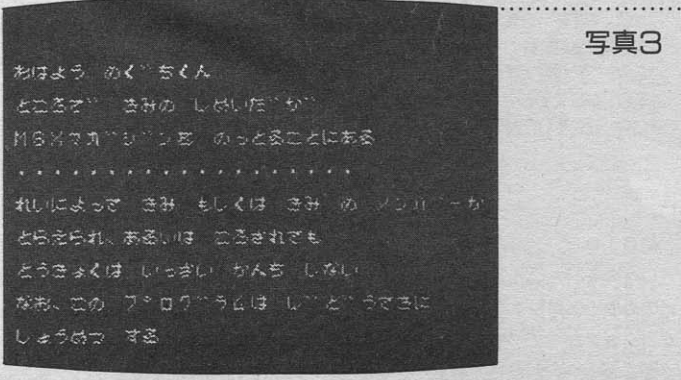 写真3
おはよう めく゛ちくん
ところて゛ きみの しめいた゛か゛
MSXマカ゛シ゛ンを のっとることにある
・・・・・・・・・・・・・・・・・・・
れいによって きみ もしくは きみ の メンハ゛ーか
とらえられ、あるいは ころされても
とうきょくは いっさい かんち しない
なお、この フ゜ロク゛ラムは し゛と゛うてきに
しょうめつ する